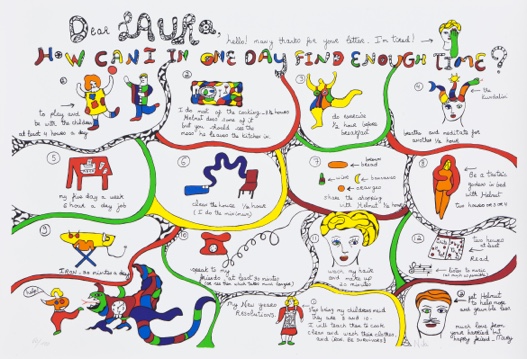 Dear LAURA,
hello! many thanks for your letter. I'm tired!
HOW CAN I IN ONE DAY FIND ENOUGH TIME?
1
to play and
be with the children
at least 4 hours a day
2
I do most of the cooking
Helmut does some of it
but you should see the
mess he leaves the kitchen in.
3
do exercise
½ hour before
breakfast
4
the
Kundalini
breathe and meditate for
another ½ hour
5
my five day a week
6 hour a day job
6
clean the house ½ hour
(I do the minimum)
7
brown
bread
wine
bananas
oranges
share the shopping
with Helmut ½ hour
8
Be a
goddess in bed
with Helmut
two hours
9
IRON - 30 minutes a day
10
speak to my
friends at least 30 minutes
11
wash my hair
and make up
20 minutes
12
two hours
at least
Read
listen to music
help
My New Years
Resolutions.
1
Stop being my childrens maid
they are 8 and 10.
I will teach them to cook
clean and wash their clothes
and (ME SURVIVORS)
2
get Helmut
to help more
and grumble less
much love from
your harried but
happy friend, Mary